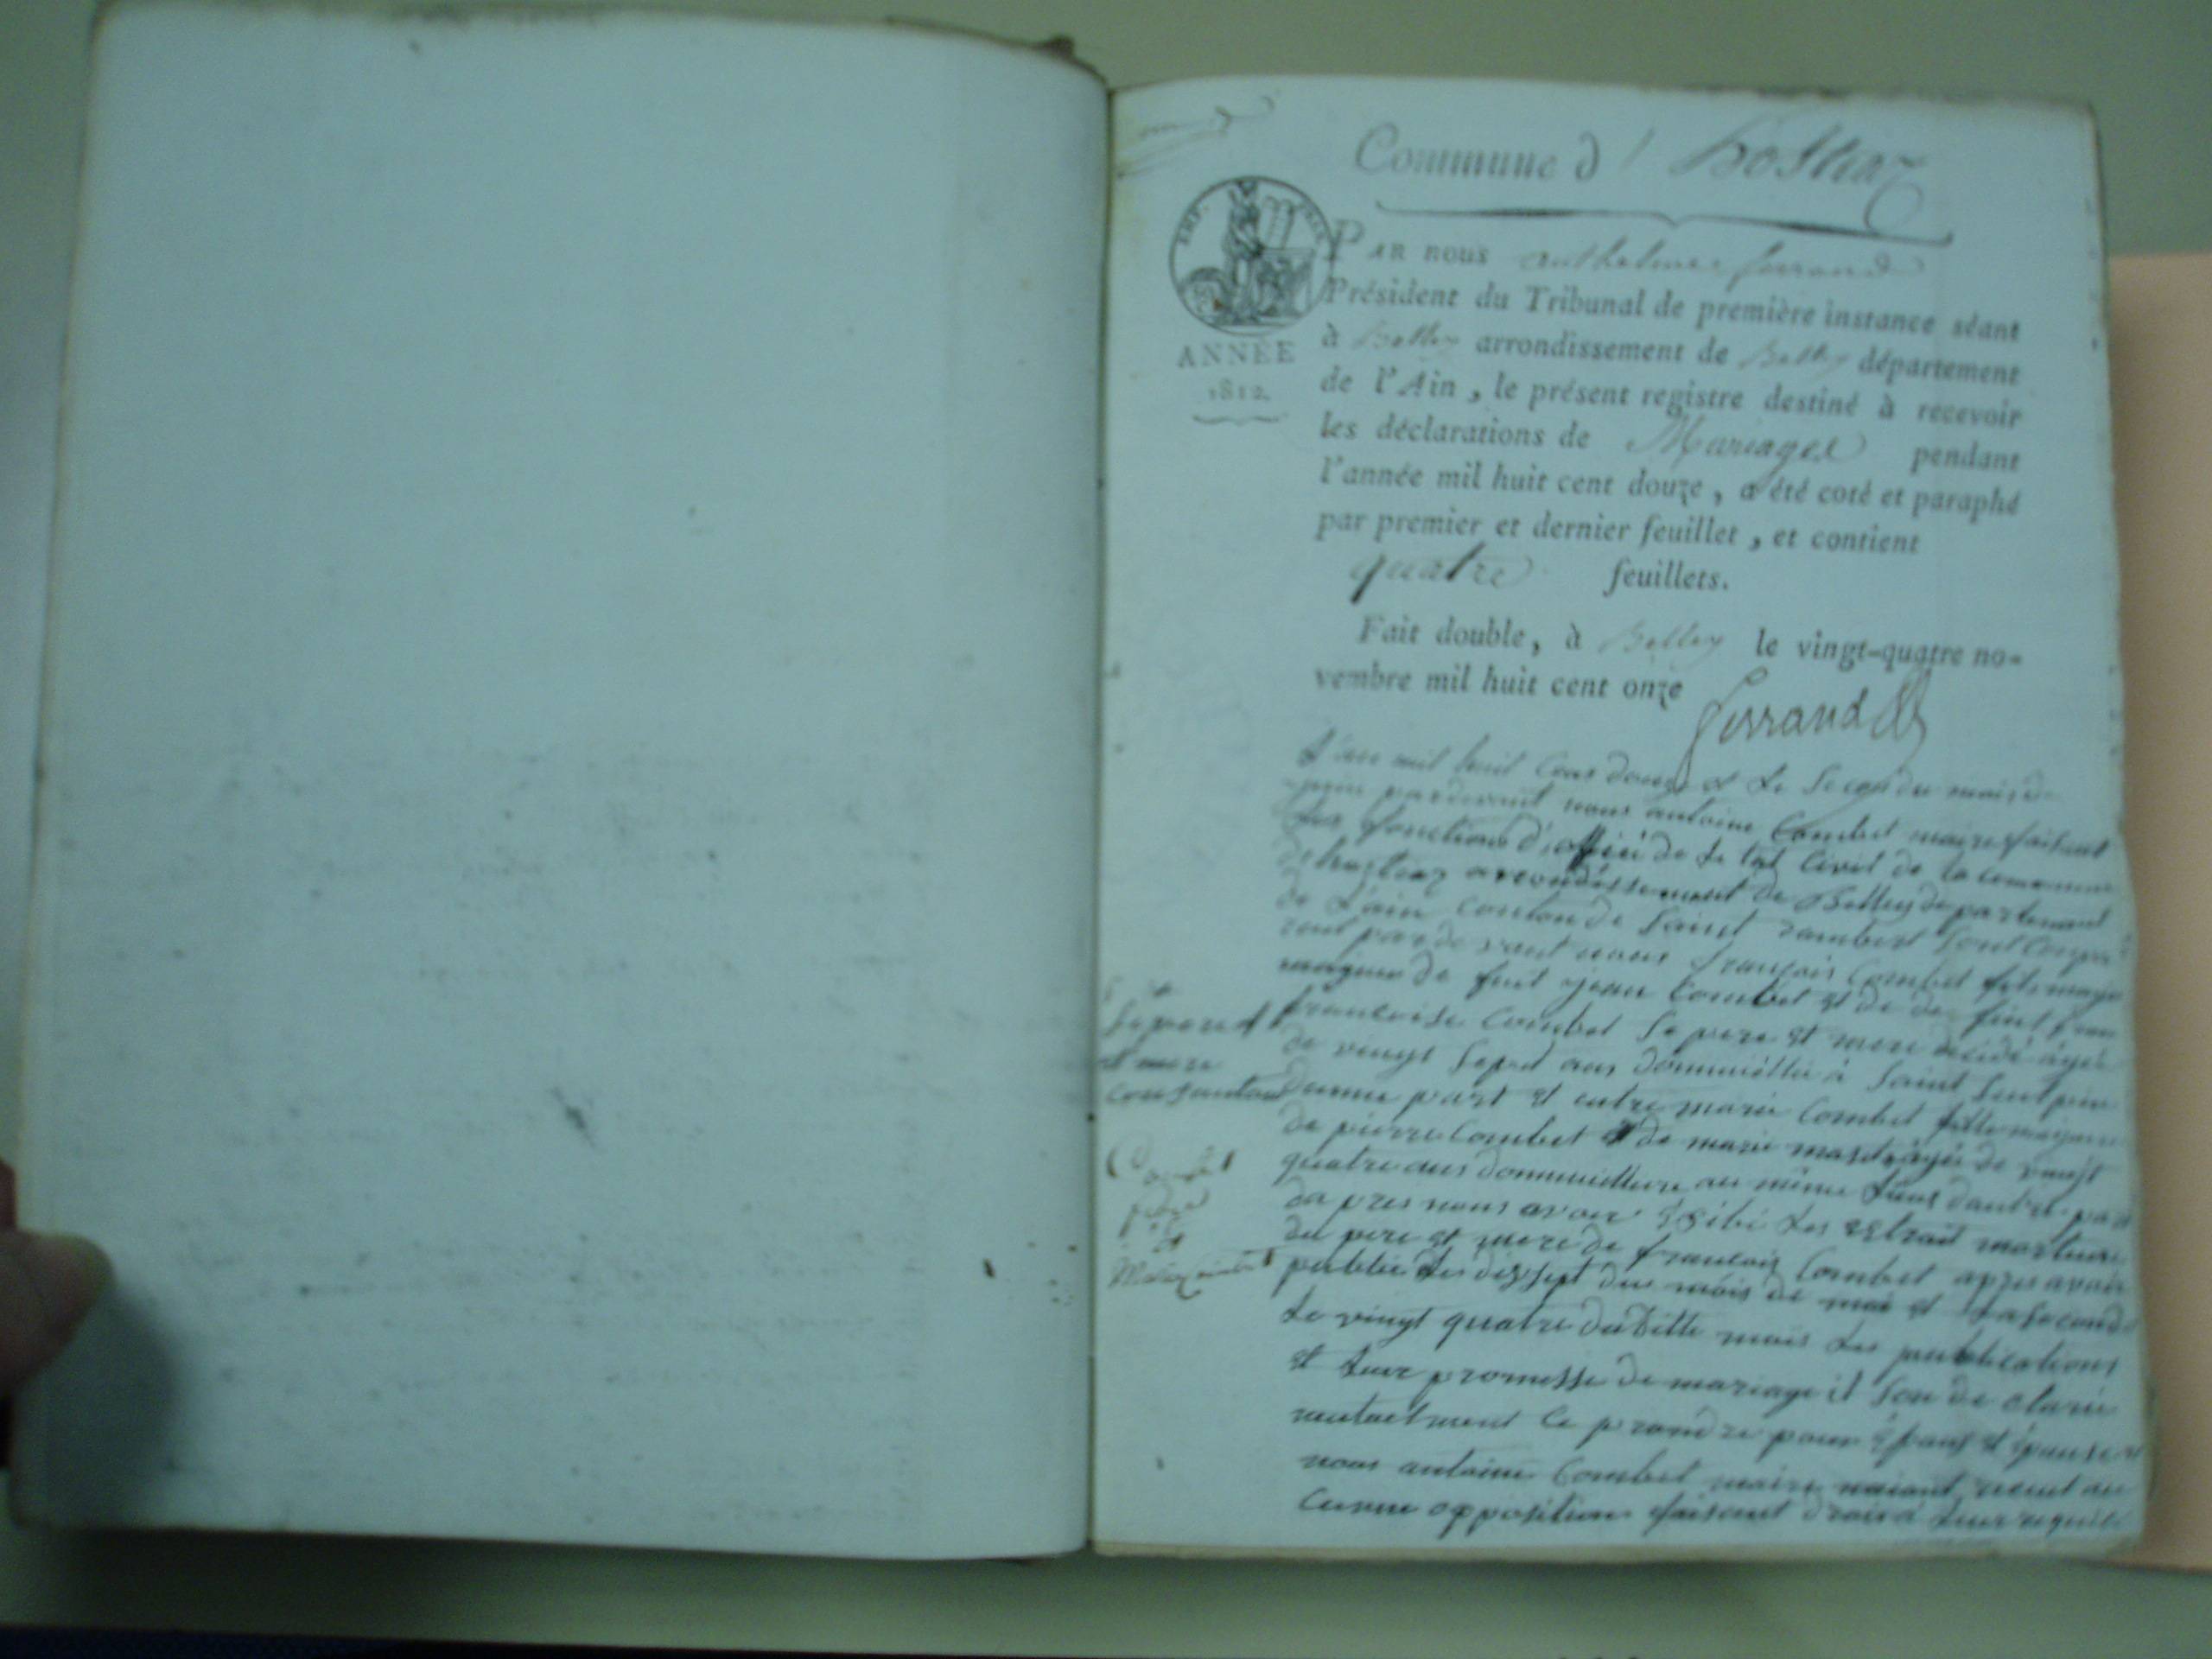 Commune d' hostiaz
EMP. FRAN.
ANNÉE
1812.
PAR nous anthelme ferrand
Président du Tribunal de première instance séant
à Belley arrondissement de Belley département
de l'Ain, le présent registre destiné à recevoir
les déclarations de Mariages pendant
l'année mil huit cent douze, a été coté et paraphé
par premier et dernier feuillet, et contient
quatre feuillets.
Fait double, à Belley le vingt-quatre no-
vembre mil huit cent onze
ferrand
L'an mil huit cens douze et le second du mois de
juin pardevant nous antoine Combet maire faisant
les fonctions d'officié de le tat Civil de la commune
arrondissement de Belley departement
de L'ain Canton de Saint rambert sont compa
rent par de vant nous francois Combet fils majeur
majeur de feut jean Combet et de de feut
francoise Combet Se pere et mere décédé agés
de vingt Sept ans
dunne part et entre marie Combet fille majeure
de pierre Combet et de marie agée de vingt
quatre ans au même lieux dautre part
da pres nous avoir les extrait mortuere
du pere et mere de francois Combet apres avoir
publié les dissept du mois de mai et la seconde
Le vingt quatre du ditte mois les publications
et leur promesse de mariage il son de claré
mutuelment ce prandre pour épous et épouse et
nous antoine Combet maire naiant recut au
cunne opposition faisant droit a leur
Le pere et
et mere
consantant
Combet
et